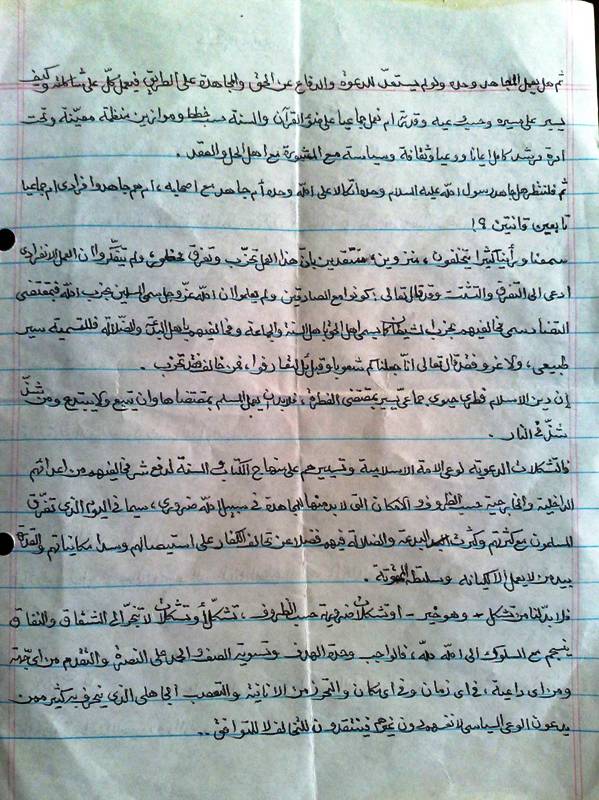 ثم هل يعمل المجاهد وحده ولولم يستعدّ للدعوة والدفاع عن الحق والمجاهدة على الطريق فيعمل كلّ على شاكلته وكيف
يسير على سيره وحسب عيه وقدرته ام نعمل جماعيا على ضوء القرآن والسنة حسب خطط وموازين منظمة معيّنة وتحت
ادرة مرشد كامل ايمانا ووعيا وثقافة وسياسة مع المشورة مع اهل الحل والعقد .
ثم فلننظر هل جاهد رسول الله عليه السلام وحده اتكالا على الله وحده أم جاهد مع اصحابه ، ام هم جاهدوا فرادى ام جماعيا
تابعين قانتين ؟!
سمعنا ورأينا كثيرا يتخلفون ، منزوين منتقدين بانّ هذا العمل تحزّب وتفرق محظور ، ولم يتفكّروا ان العمل الانفرادى
ادعى الى التفرق والتشتت وقد قال تعالى : كونوا مع الصادقين ولم يعلموا ان الله عزّ وجل سمى المسلمين بحزب الله فبمقتضى
التضاد سمى مخالفيهم بحزب الشيطان كما يسمى اهل الحق باهل السنة والجماعة ومخالفيهم باهل البدعة والضلالة فللتسمية سير
طبيعي ، ولا غرو فقد قال تعالى انّا جعلناكم شعوبا وقبائل لتعارفوا ، فمن خالف فقد تحزب .
إن دين الاسلام فطري حيوي جماعيّ يسير بمقتضى الفطرة ، فلابد ان يعمل المسلم بمقتضاها وان يتبع ولا يبتدع ومن شذّ
شذّ فى النار .
فالتشكلات الدعوية لوعى الامة الاسلامية وتسييرهم على منهاج الكتاب والسنة لدفع شر مخالفيهم من اعدائهم
الداخلية والخارجية حسب الظروف والامكان التى لا بد منها للمجاهدة فى سبيل الله ضروري ، سيما فى اليوم الذى تفرّق
المسلمون مع كثرتهم وكثرت البدعة والضلالة فيهم فضلا عن تحالف الكفار على استيصالهم وسد امكانياتهم والقدرة
بيد من لا يعمل الا لكيانه وسلطته المموّتة .
فلا بدّ لنا من تشكل - وهو خير - او تشكلات ضرورية حسب الظروف ، تشكّل أو تشكلات لا تنجرّ الى الشقاق والنفاق
ينسجم مع السلوك الى الله لله ، فالواجب وحدة الهدف وتسوية الصف والحمل على النصرة والتقدم من اى جهة
ومن اى داعية ، فى اى زمان وفى اى مكان والتحرز من الانانية والتعصب الجاهلى الذى ينحرف به كثير ممن
يدعون الوعى السياسى لانفسهم دون غيرهم فينتقدون للتخالف لا للتوافق ..